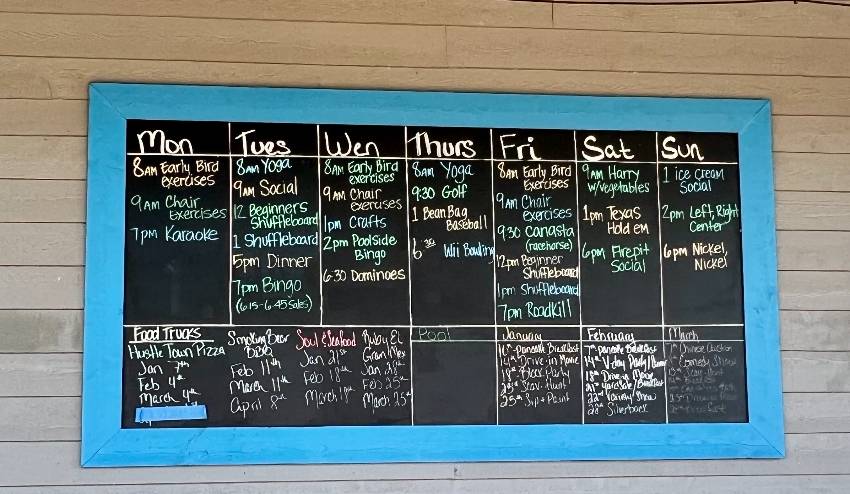 Mon
8AM Early Bird
exercises
9AM Chair
Exercises
7pm Karaoke
Tues
8AM Yoga
9AM Social
12 Beginners
Shuffleboard
1 Shuffleboard
5pm Dinner
7pm Bingo
(6:15-6:45 Sales)
Wen
8AM Early Bird
exercises
9AM Chair
exercises
1pm Crafts
2pm Poolside
Bingo
6:30 Dominoes
Thurs
8am Yoga
9:30 Golf
1 Bean Bag
Baseball
6:30 Wii Bowling
Fri
8AM Early Bird
Exercises
9AM Chair
exercises
9:30 Canasta
(racehorse)
12pm Beginner
Shuffleboard
1pm Shuffleboard
7pm Roadkill
Sat
9AM Harry
w/vegetables
1pm Texas
Hold em
6pm Firepit
Social
Sun
1 ice cream
Social
2pm Left, Right
Center
6pm Nickel,
Nickel
Food Trucks
Hustle Town Pizza
Jan 7th
Feb 4th
March 4th
Smoking Bear
BBQ
Feb 11th
March 11th
April 8th
Soul & Seafood
Jan 21st
Feb 18th
March 18th
Ruby El
Jan 28th
Feb 25th
March 25th
Pool
January
Pancake Breakfast
Drive in Movie
Block Party
Scav. Hunt
25th Sip + Paint
February
7th Pancake Breakfast
14th V-day Party/
18th Drive in Movie
21st yardsale/Breakfast
22nd Variety Show
28th Silverback
March
Comedy Show